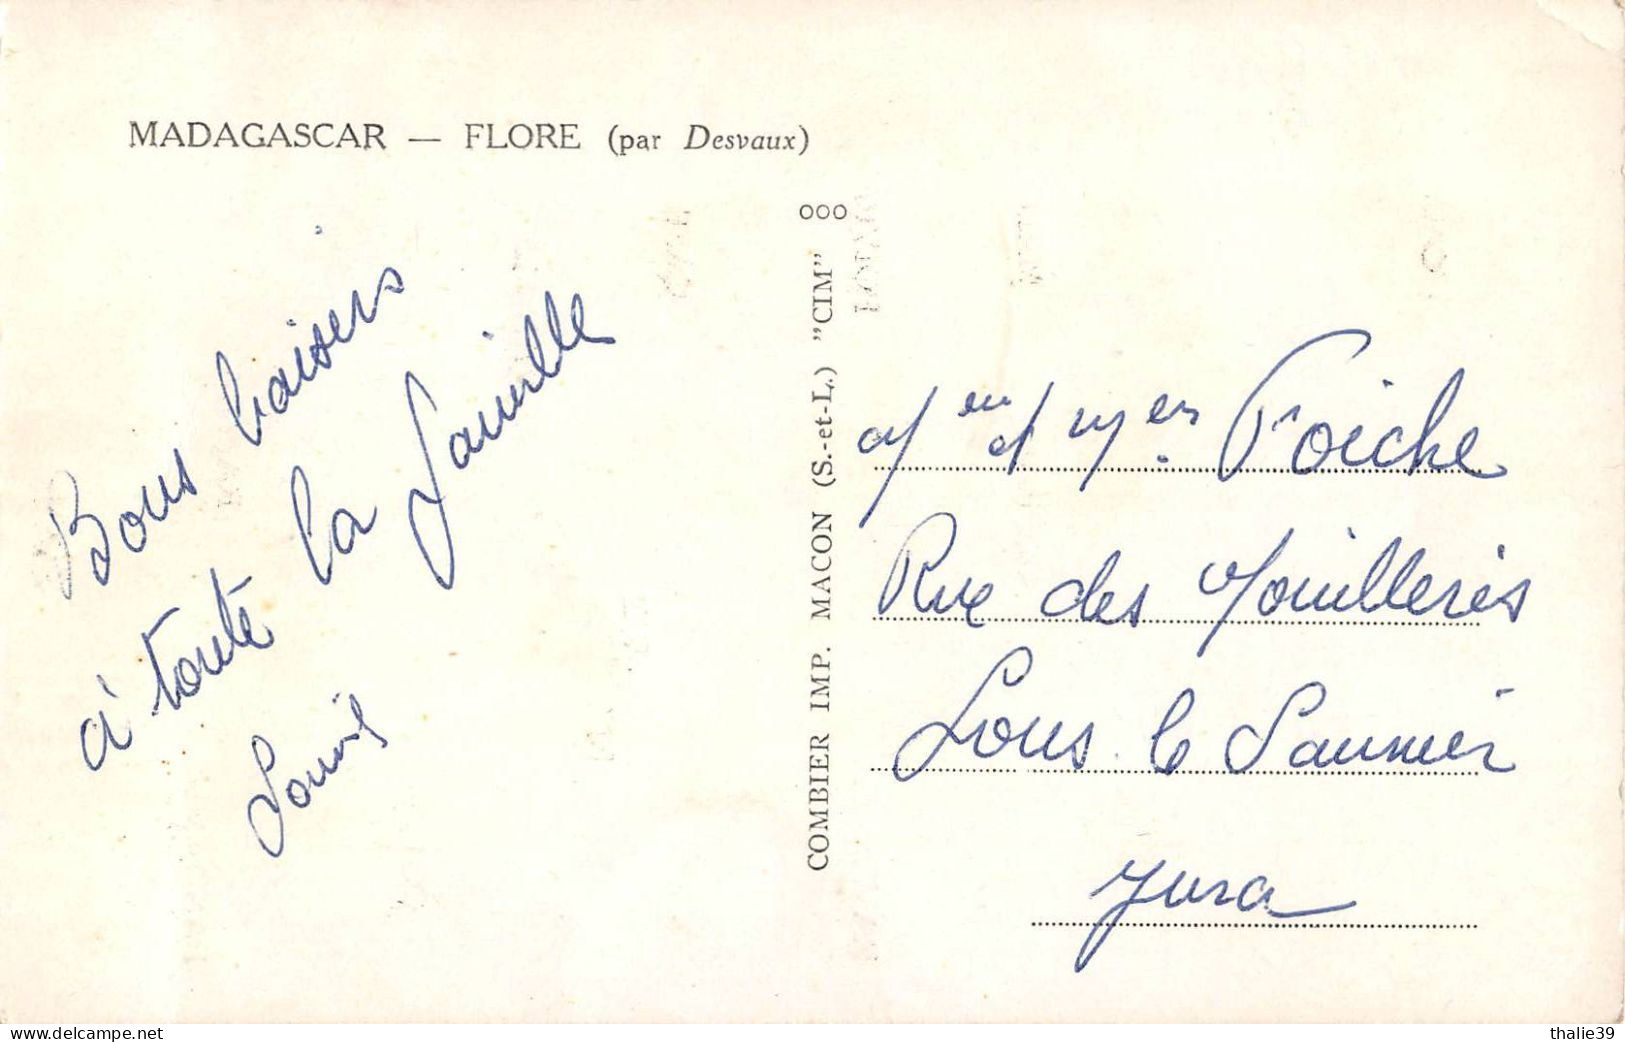 MADAGASCAR — FLORE (par Desvaux)
Bons baisers
à toute la famille
Louis
COMBIER IMP. MACON (S.-et-L.) "CIM"
000
Mr et Mme Foiche
Rue des Mouilleries
Lons le Saunier
Jura
www.delcampe.net
thalie39